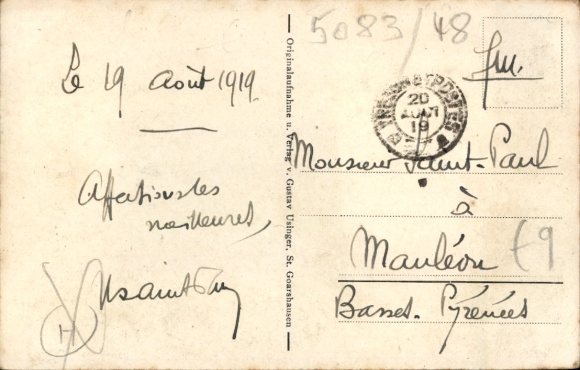 Le 19 août 1919.
Affections les
meilleures,
Originalaufnahme u. Verlag v. Gustav Usinger, St. Goarshausen
5083/48
fm.
20
AOUT
19
Monsieur Saint-Paul
à
Mauléon
Basses-Pyrénées
€9